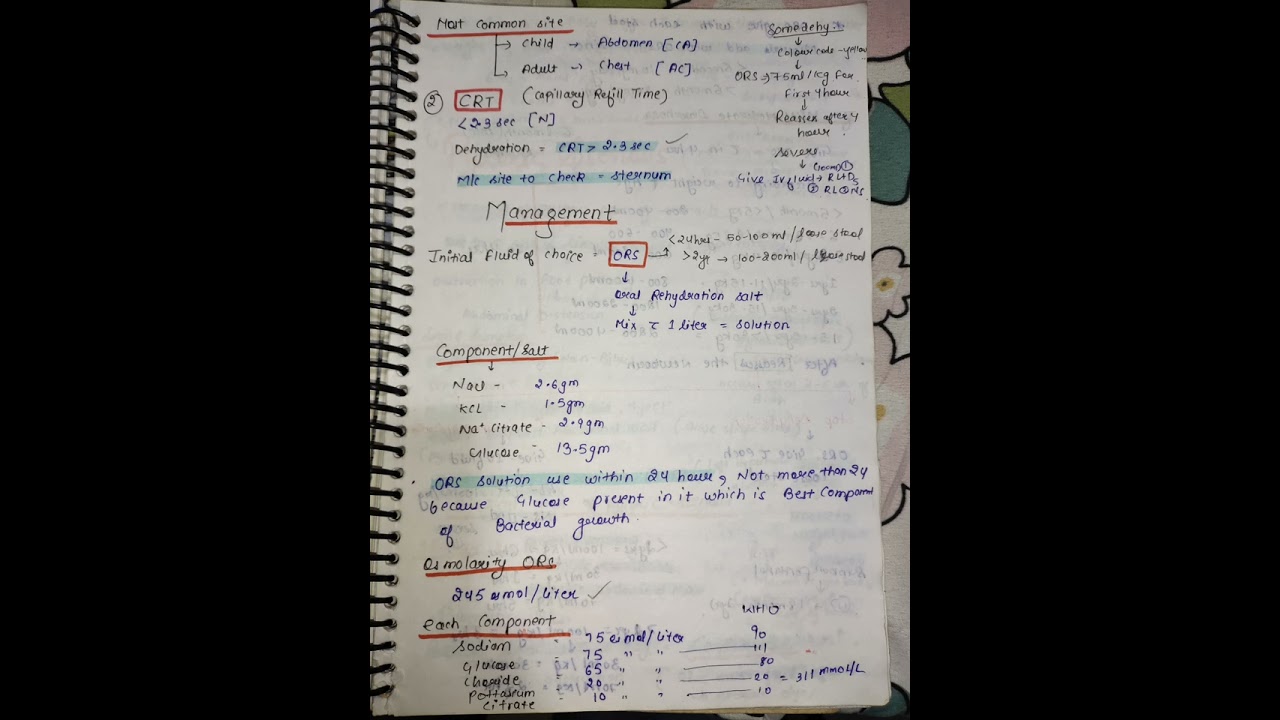 Most common site
→ Child → Abdomen [CA]
→ Adult → Chest [AC]
② CRT (Capillary Refill Time)
<2.3 sec [N]
Dehydration = CRT > 2.3 sec ✓
M/c site to check = sternum
Somedehy.
↓
Colour code - yellow
↓
ORS → 75ml/kg for
First 4 hour
↓
Reasses after 4
hour.
Severe
↓
Give IV fluid → RL+D5
② RL NS
Management
Initial fluid of choice = ORS → <24hrs - 50-100ml/loose stool
>2yr → 100-200ml/loose stool
↓
Oral Rehydration salt
↓
Mix c̄ 1 liter = solution
Component/salt
↓
NaCl - 2.6gm
KCL - 1.5gm
Na+ citrate - 2.9gm
Glucose - 13.5gm
ORS solution use within 24 hour, Not more than 24
because Glucose present in it which is Best Component
of Bacterial growth.
Osmolarity ORS
245 osmol/liter ✓
each Component
WHO
Sodium - 75 osmol/liter 90
Glucose - 75 " " 111
Chloride - 65 " " 80
Pottasium - 20 " " 20 = 311 mmol/L
Citrate - 10 " " 10